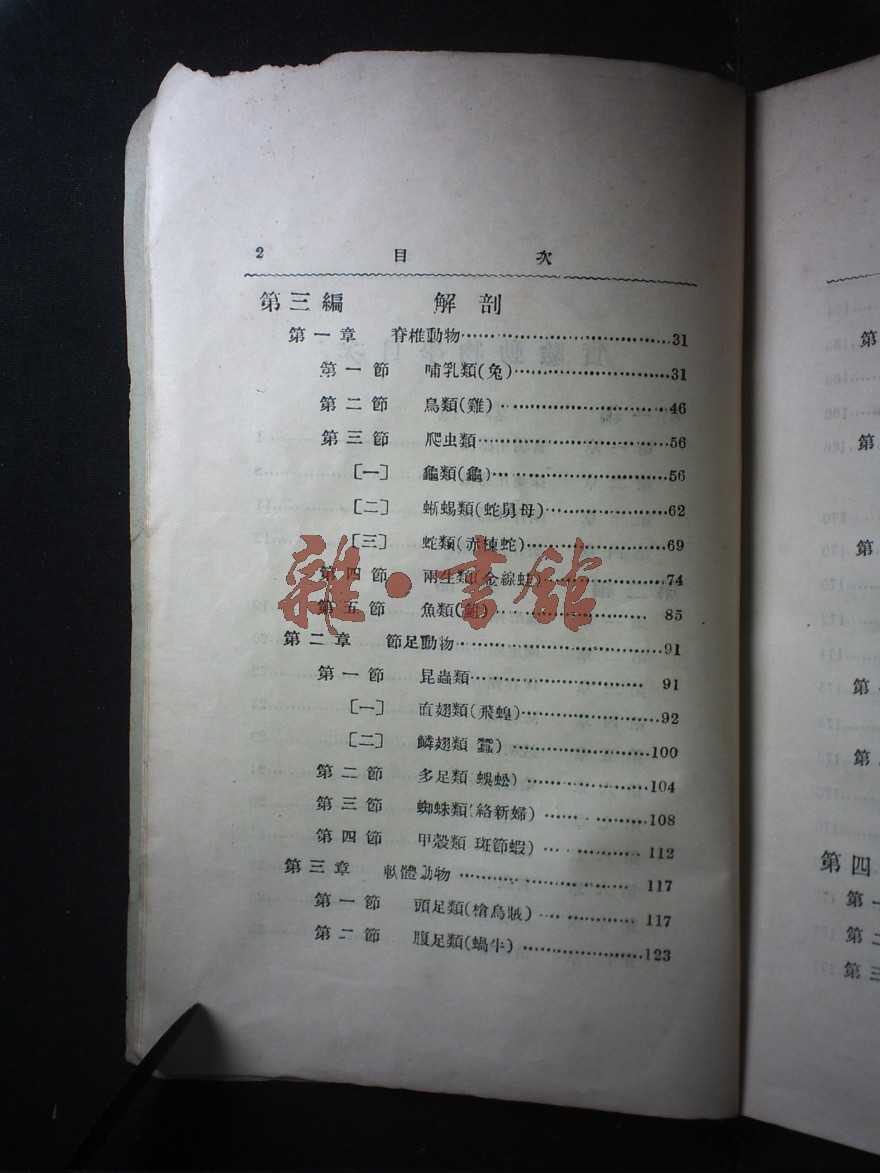 2 目 次
第三編 解剖
第一章 脊椎動物 31
第一節 哺乳類(兔) 31
第二節 鳥類(雞) 46
第三節 爬虫類 56
〔一〕 龜類(龜) 56
〔二〕 蜥蜴類(蛇舅母) 62
〔三〕 蛇類(赤楝蛇) 69
第四節 兩生類(金線蛙) 74
第五節 魚類( ) 85
第二章 節足動物 91
第一節 昆蟲類 91
〔一〕 直翅類(飛蝗) 92
〔二〕 鱗翅類 蠶) 100
第二節 多足類 蜈蚣) 104
第三節 蜘蛛類(絡新婦) 108
第四節 甲殼類 斑節蝦) 112
第三章 軟體動物 117
第一節 頭足類(槍烏賊) 117
第二節 腹足類(蝸牛) 123
雜·書館
第
第
第
第
第
第四
第一
第二
第三